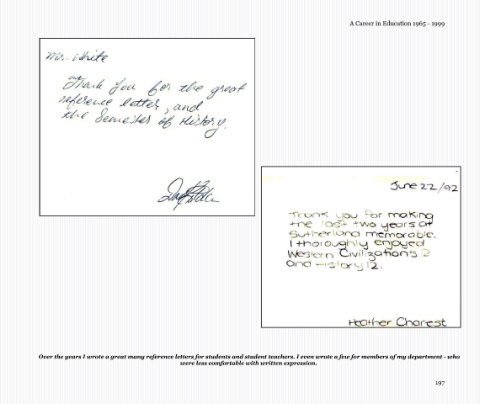 A Career in Education 1965 - 1999
Mr. White
Thank you for the great
reference letter, and
the Semester of History.
June 22/92
Thank you for making
the last two years at
Sutherland memorable.
I thoroughly enjoyed
Western Civilizations 2
and History 12.
Heather Charest
Over the years I wrote a great many reference letters for students and student teachers. I even wrote a few for members of my department - who
were less comfortable with written expression.
197